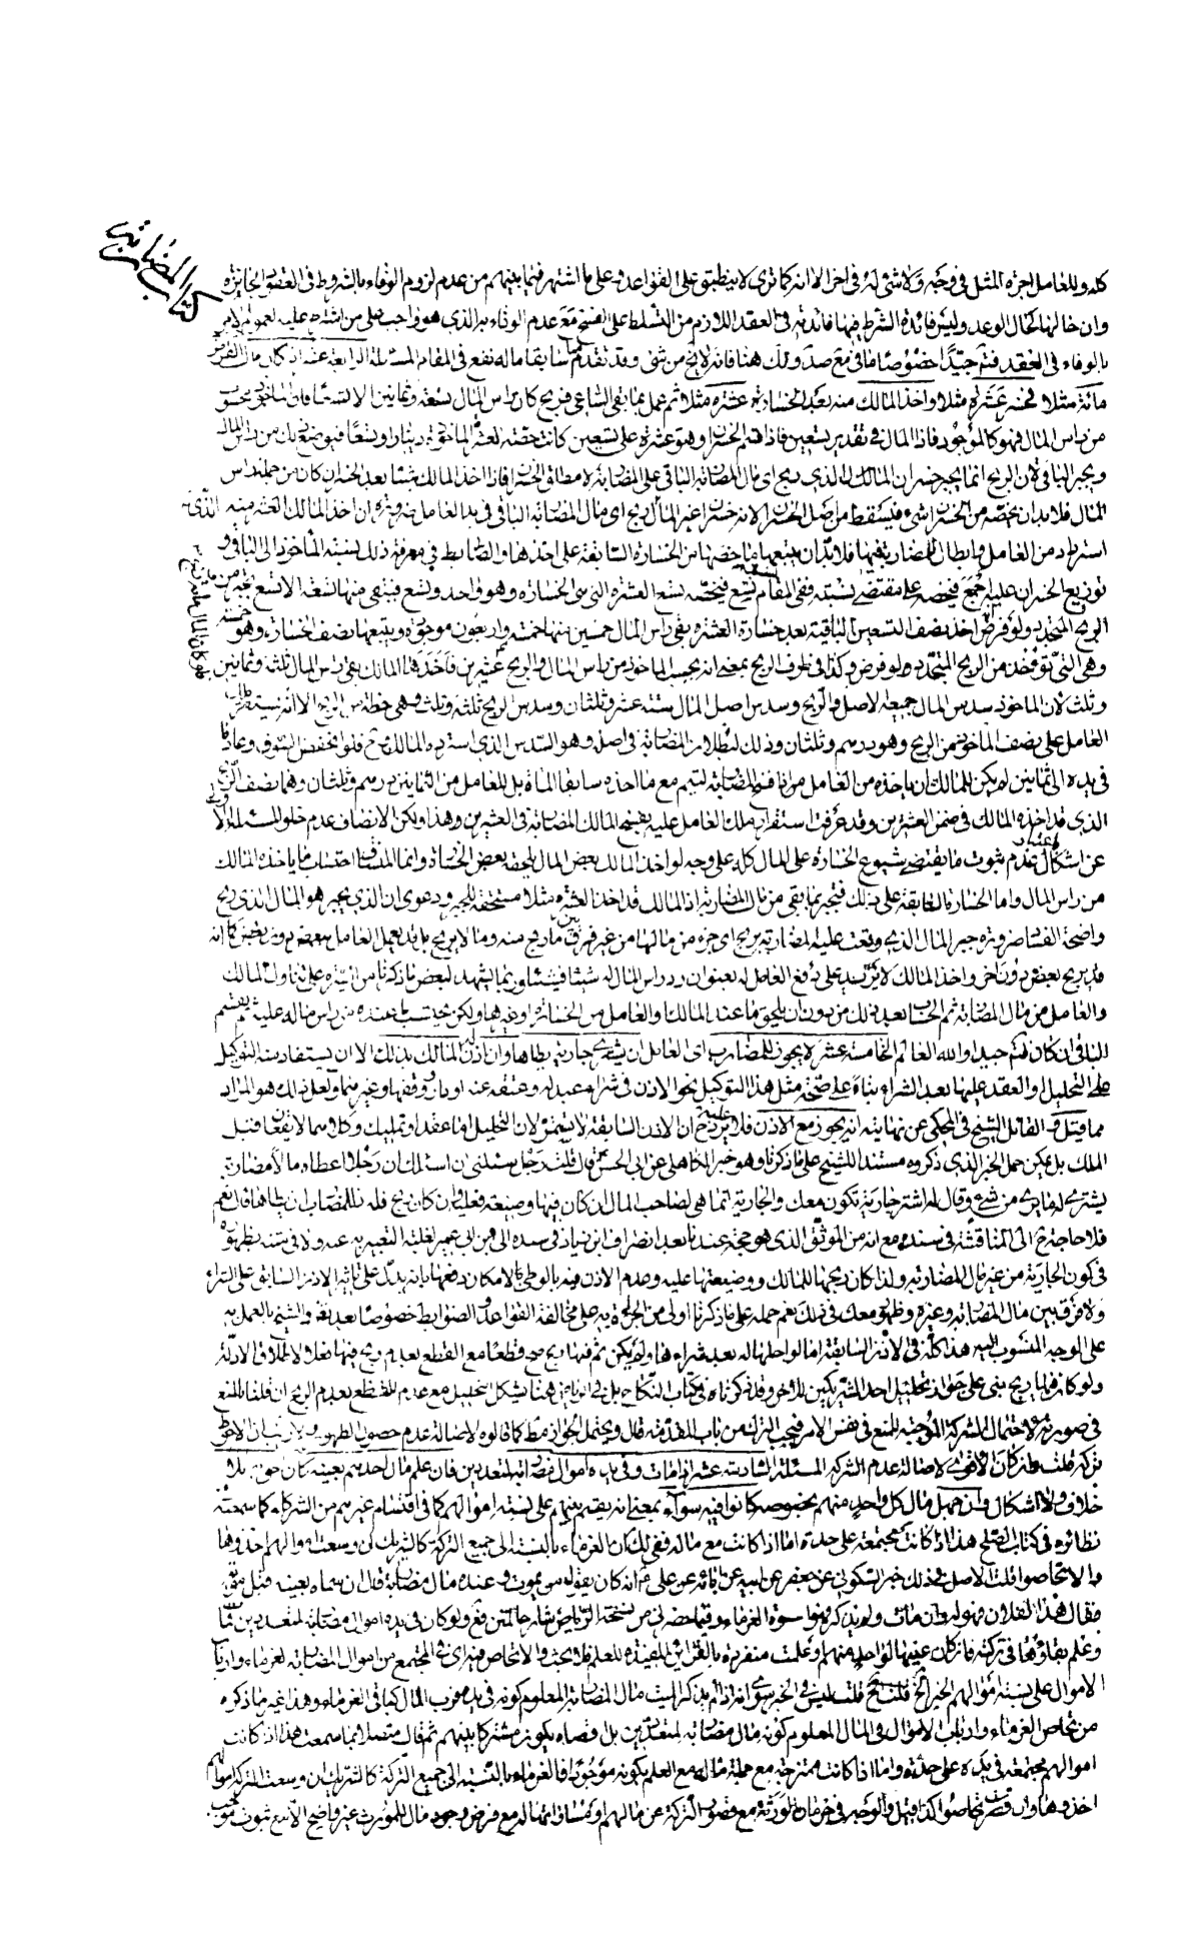 كتاب المضاربة
كله وللعامل اجرة المثل في وجه ولا شئ له في اخر الا انه كما ترى لا ينطبق على القواعد وعلى ما اشتهر فيما بينهم من عدم لزوم الوفاء بالشروط في العقود الجائزة
وان حالها كحال الوعد وليس فائدة الشرط فيها فائدته في العقد اللازم من التسلط على الفسخ مع عدم الوفاء به الذي هو واجب على من اشترط عليه لعموم الامر
بالوفاء في العقد فتم جيدا خصوصا ما في مع صدر ذلك هنا فانه لا يخ من شئ وقد تقدم لنا سابقا ماله نفع في المقام المسئلة الرابعة عشر اذا كان مال القراض
مائة مثلا فخسر عشرة مثلا واخذ المالك منه بعد الخسارة عشرة مثلا ثم عمل بما بقى الساعي فربح كان راس المال تسعة وثمانين الا تسعا فان الماخوذ محسوب
من راس المال فهو كالموجود فاذا المال في تقدير تسعين فاذا قسم الخسران وهو عشرة على تسعين كانت حصة العشرة الماخوذة دينارا وتسعا فيوضع ذلك من راس المال
ويجبر الباقي لان الربح انما يجبر خسران المالك الذي ربح اي مال المضاربة الباقي على المضاربة لا مطلق الخسران فاذا اخذ المالك شيئا بعد الخسران كان من جملة راس
المال فلا بد ان يخصه من الخسران شئ فيسقط من اصل الخسران لانه خسران غير المال ربح اي مال المضاربة الباقي في يد العامل ضرورة ان اخذ المالك العشرة منه الذي
استرداد من العامل وابطال للمضاربة فيها فلا بد ان يتبعها ما خصها من الخسارة السابقة على اخذها والضابط في معرفة ذلك نسبة الماخوذ الى الباقي و
توزيع الخسران عليه اجمع فيخصه على مقتضى نسبته ففي المقام تسع فيخصه تسع العشرة التي هي الخسارة وهو واحد وتسع فيبقى منها تسعة الا تسع يجبر من
الربح المتجدد ولو فرض اخذ نصف التسعين الباقية بعد خسارة العشرة بقى راس المال خمسين منها خمسة واربعون موجودة ويتبعها نصف الخسارة وهو خمسة
وهي التي تؤخذ من الربح المتجدد لو فرض وكذا في طرف الربح بمعنى انه يحسب الماخوذ من راس المال والربح عشرين فاخذها المالك بقى راس المال ثلثة وثمانين
وثلث لان الماخوذ سدس المال جميعه الاصل والربح وسدس اصل المال ستة عشر وثلثان وسدس الربح ثلثة وثلث وهي حظه من الربح الا انه يستقر ملك
العامل على نصف الماخوذ من الربح وهو درهم وثلثان وذلك لبطلان المضاربة في اصل وهو السدس الذي استرده المالك مع فلو انخفض السوق وعاد ما
في يده الى ثمانين لم يكن للمالك ان ياخذه من العامل من انا فسخ المضاربة ليتم مع ما اخذه سابقا المائة بل للعامل من الثمانين درهم وثلثان وهما نصف الربح
الذي قد اخذه المالك في ضمن العشرين وقد عرفت استقرار ملك العامل عليه بفسخ المالك المضاربة في العشرين وهذا ولكن الانصاف عدم خلو المسئلة
عن اشكال لعدم ثبوت ما يقتضي شيوع الخسارة على المال كله على وجه لو اخذ المالك بعض المال يلحقه بعض الخسارة وانما المتيقن احتساب ما ياخذه المالك
من راس المال واما الخسارة السابقة على ذلك فتجبر بما بقى من مال المضاربة اذ المالك قد اخذ العشرة مثلا مستحقة للجبر ودعوى ان الذي يجبر هو المال الذي ربح
واضحة الفساد ضرورة جبر المال الذي وقعت عليه المضاربة بربح اي جزء من مالها من غير فرق بين ما ربح منه وما لا يربح بل بلا يعمل العامل ببعض دون بعض كما انه
قد يربح بعض دون اخر واخذ المالك لا يزيد على دفع العامل له بعنوان رد راس المال له شيئا فشيئا وربما يشهد لبعض ما ذكرنا من السيرة على تناول المالك
والعامل من مال المضاربة ثم الحساب بعد ذلك من دون ان يلحق ما عند المالك والعامل من الخسارة او غيرها ولكن يحتسب ما عنده من راس ماله عليه ثم يقسم
الباقي ان كان فتم جيدا والله العالم الخامسة عشر لا يجوز للمضارب اي العامل ان يشتري جارية يطاها وان اذن له المالك بذلك الا ان يستفاد منه التوكيل
على التحليل او العقد عليها بعد الشراء بناء على صحة مثل هذا التوكيل نحو الاذن في شراء عبد له وعتقه عنه او دار ووقفها وغيرهما ولعل ذلك هو المراد
مما قيل والقائل الشيخ في المحكي عن نهايته انه يجوز مع الاذن فلا يرد عليه ح ان الاذن السابقة لا تثمر لان التحليل اما عقد او تمليك وكلاهما لا يقعان قبل
الملك بل يمكن حمل الخبر الذي ذكروه مستندا للشيخ على ما ذكرنا وهو خبر الكاهلي عن ابي الحسن ع قال قلت رجل سئلني ان اسئلك ان رجلا اعطاه مالا مضاربة
يشتري له ما يرى من شئ وقال له اشتر جارية تكون معك والجارية انما هي لصاحب المال ان كان فيها وضيعة فعليه وان كان ربح فله للمضارب ان يطاها قال نعم
فلا حاجة ح الى المناقشة في سنده مع انه من الموثق الذي هو حجة عندنا بعد انصراف ابن زياد في سنده الى ابن ابي عمير لغلبة التعبير به عنه ولا في متنه بظهوره
في كون الجارية من غير مال المضاربة ولذا كان ربحها للمالك ووضيعتها عليه وعدم الاذن فيه بالوطي لامكان دفعها بانه يدل على تاثير الاذن السابق على الشراء
ولا فرق بين مال المضاربة وغيره وظهور معك في ذلك نعم حمله على ما ذكرنا اولى من الجراة به على مخالفة القواعد والضوابط خصوصا بعد تفرد الشيخ بالعمل به
على الوجه المنسوب اليه هذا كله في الاذن السابقة اما لو احلها له بعد شراءها ولم يكن ثم فيها ربح صح قطعا مع القطع بعدم ربح فيها فعلا لاطلاق الادلة
ولو كان فيها ربح بنى على جواز تحليل احد الشريكين للاخر وقد ذكرناه في كتاب النكاح بل في الرياض هنا يشكل التحليل مع عدم القطع بعدم الربح ان قلنا بالمنع
في صورته لاحتمال الشركة الموجبة للمنع في نفس الامر فيجب الترك من باب المقدمة قال ويحتمل الجواز مط كما قالوه لاصالة عدم حصول الظهور ولا ريب ان الاحوط
تركه قلت وان كان الاقوى لاصالة عدم الشركة المسئلة السادسة عشر اذا مات وفي يده اموال مضاربة لمتعددين فان علم مال احدهم بعينه كان احق به بلا
خلاف ولا اشكال وان جهل مال كل واحد منهم بخصوصه كانوا فيه سواء بمعنى انه يقسم بينهم على نسبة اموالهم كما في اقتسام غيرهم من الشركاء كما سمعت
نظائره في كتاب الصلح هذا اذا كانت مجتمعة على حدة اما اذا كانت مع ماله ففي لك ان الغرماء بالنسبة الى جميع التركة كالشريك ان وسعت اموالهم اخذوها
والا تحاصوا قلت الاصل في ذلك خبر السكوني عن جعفر عن ابيه عن ابائه عن علي ع انه كان يقول من يموت وعنده مال مضاربة قال ان سماه بعينه قبل موته
فقال هذا لفلان فهو له وان مات ولم يذكر فهو اسوة الغرماء وفيما حضرني من نسخة الرياض شارحا لمتن فع ولو كان في يده اموال مضاربة لمتعددين فمات
وعلم بقاؤها في تركته فان كان عينها لواحد منهم او علمت منفردة بالقرائن المفيدة للعلم فلا بحث والا تحاص فيه اي في المجتمع من اموال المضاربة الغرماء وارباب
الاموال على نسبة اموالهم للخبر الخ قلت ليس في الخبر سوى انه اذا لم يذكر الميت مال المضاربة المعلوم كونه في يده فرب المال كباقي الغرماء وهذا غير ما ذكره
من تحاص الغرماء وارباب الاموال في المال المعلوم كونه مال مضاربة لمتعددين بل قصاراه يكون مشتركا بينهم ثم قال متصلا بما سمعت هذا اذا كانت
اموالهم مجتمعة في يده على حدة واما اذا كانت ممتزجة مع جملة ماله مع العلم بكونه موجودا فالغرماء بالنسبة الى جميع التركة كالشريك ان وسعت التركة اموالهم
اخذوها وان قصرت تحاصوا كذا قيل والوجه في حرمان الورثة مع قصور التركة عن مالهم او مساواتها له مع فرض وجود مال للمورث غير واضح الا مع ثبوت موجب